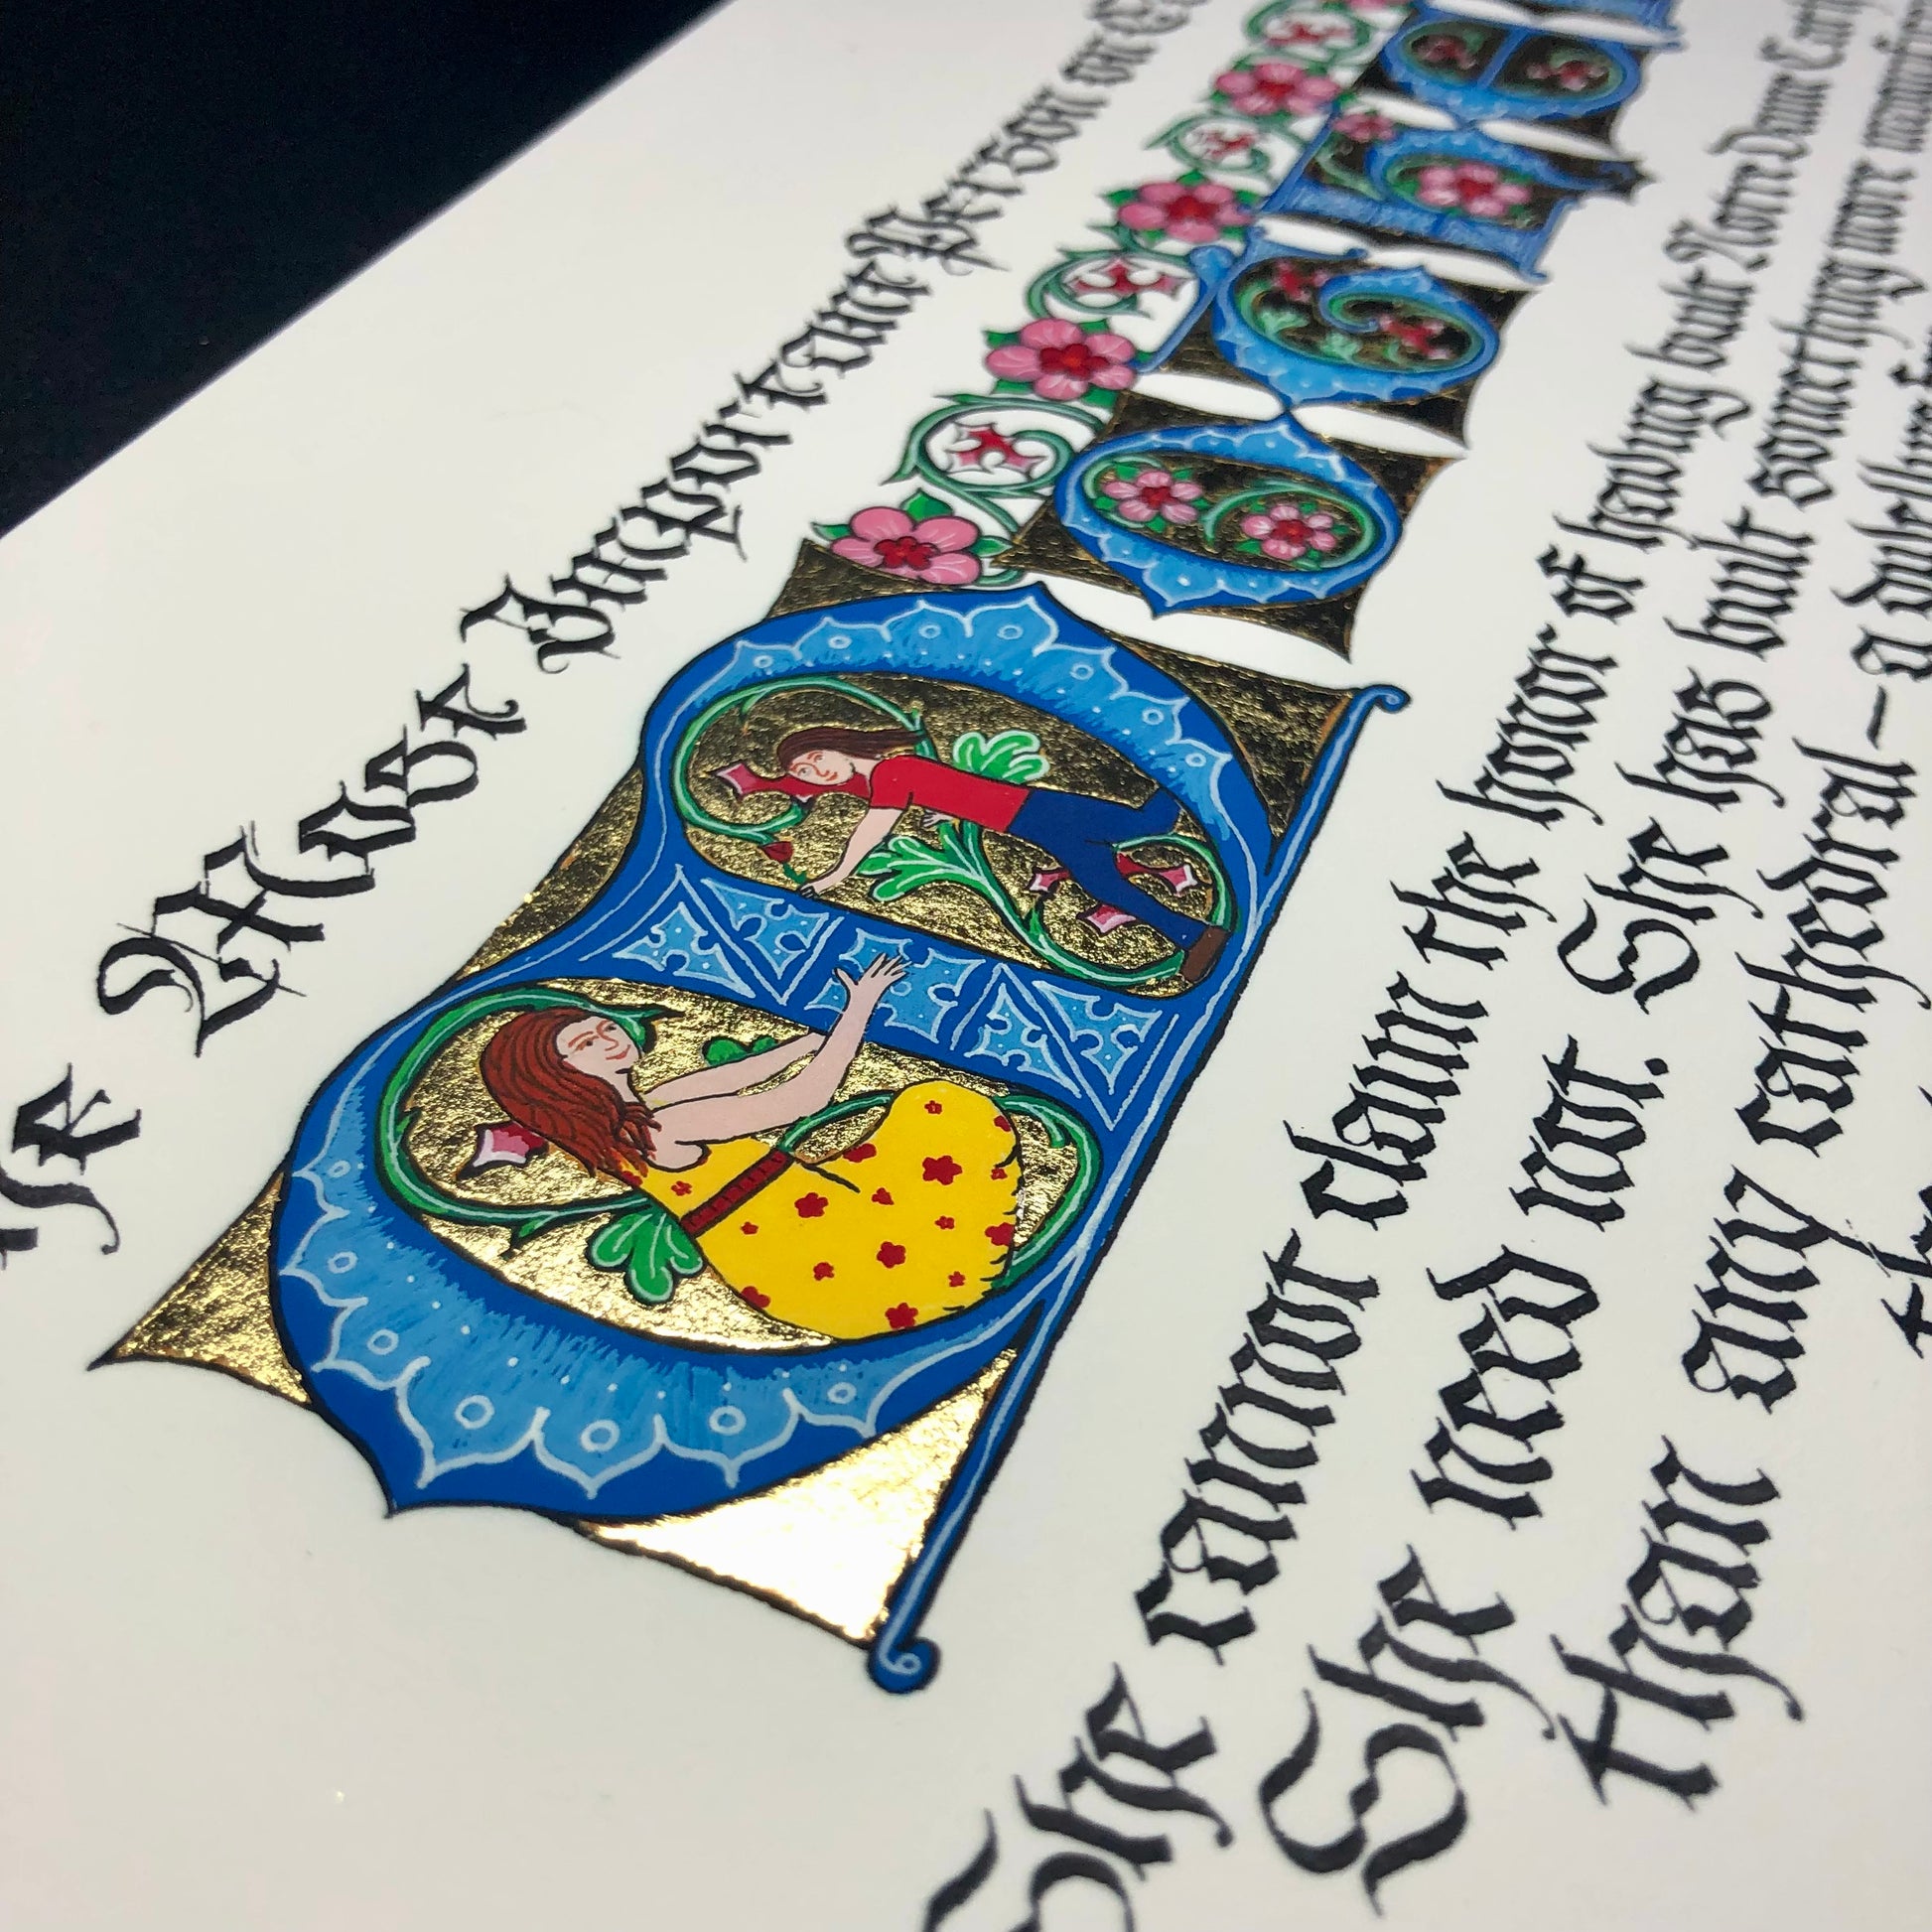 he Most Important Person on
MOTHE
She cannot claim the honor of having built Notre Dame Cath
She need not. She has built something more magnific
than any cathedral—a dwelling f